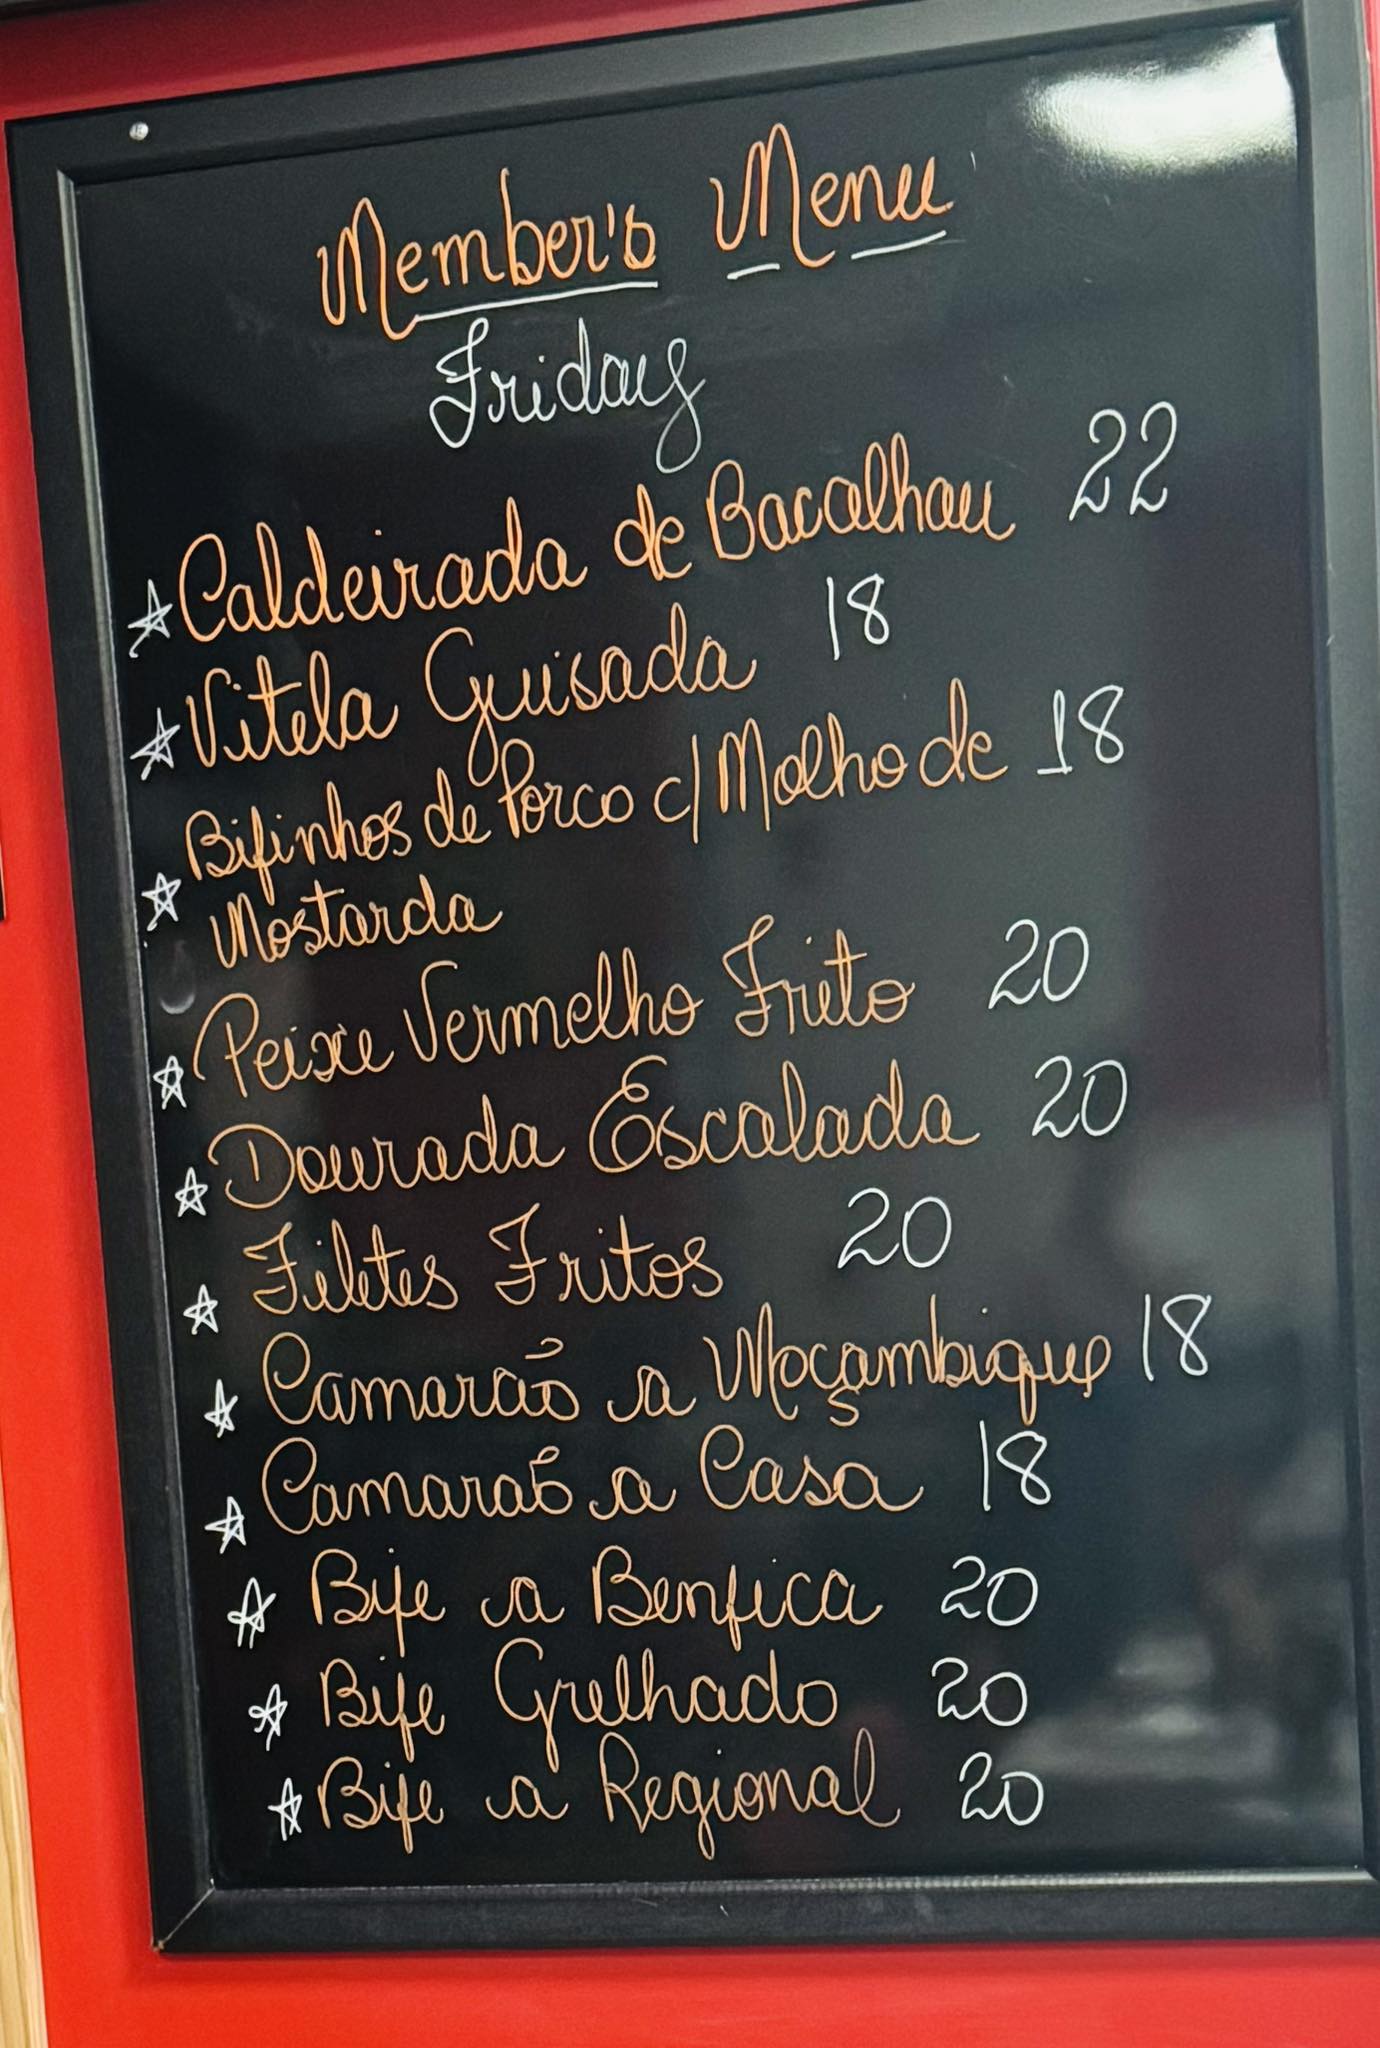 Member's Menu
Friday
Caldeirada de Bacalhau 22
Vitela Guisada 18
Bifinhos de Porco c/ Molho de 18
Mostarda
Peixe Vermelho Frito 20
Dourada Escalada 20
Filetes Fritos 20
Camarão a Moçambique 18
Camarão a Casa 18
Bife a Benfica 20
Bife Grelhado 20
Bife a Regional 20